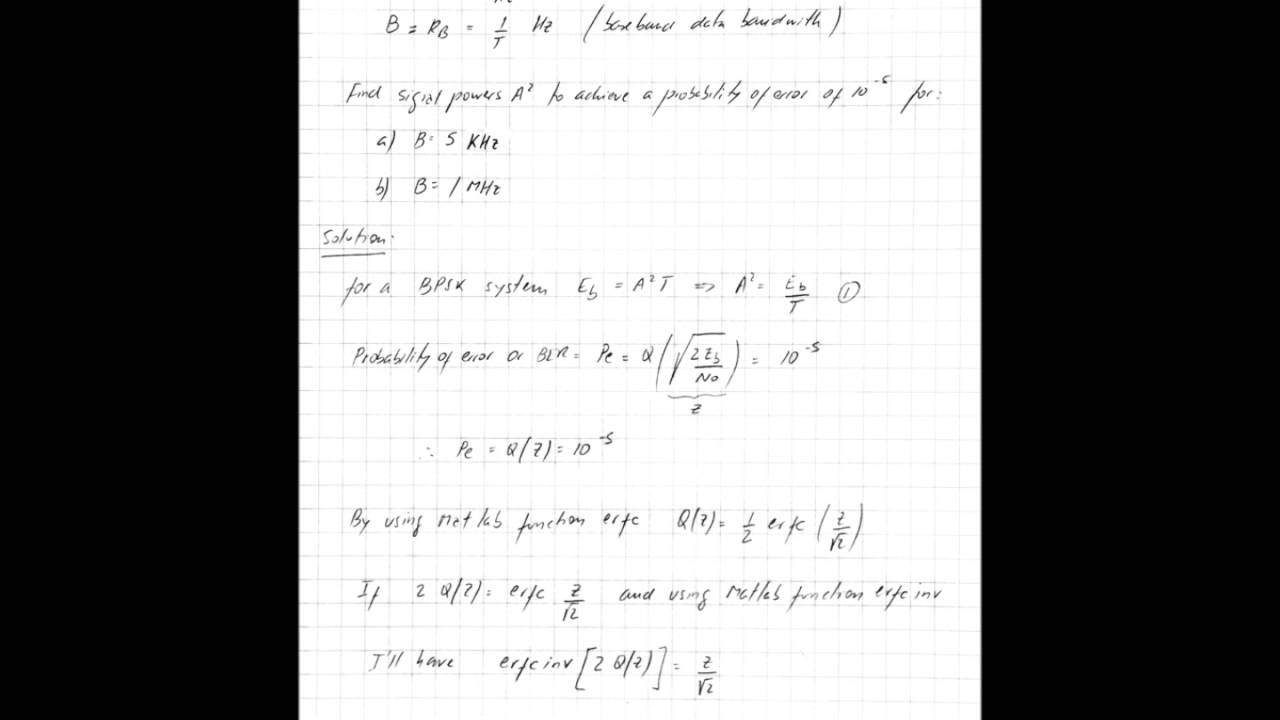 B = R_B = 1/T Hz (baseband data bandwith)
Find signal powers A² to achieve a probability of error of 10⁻⁵ for:
a) B = 5 KHz
b) B = 1 MHz
Solution:
for a BPSK system E_b = A²T => A² = E_b/T ①
Probability of error or BER = Pe = Q(√(2E_b/No)) = 10⁻⁵
z
∴ Pe = Q(z) = 10⁻⁵
By using Matlab function erfc Q(z) = 1/2 erfc (z/√2)
If 2 Q(z) = erfc z/√2 and using Matlab function erfcinv
I'll have erfcinv [2 Q(z)] = z/√2